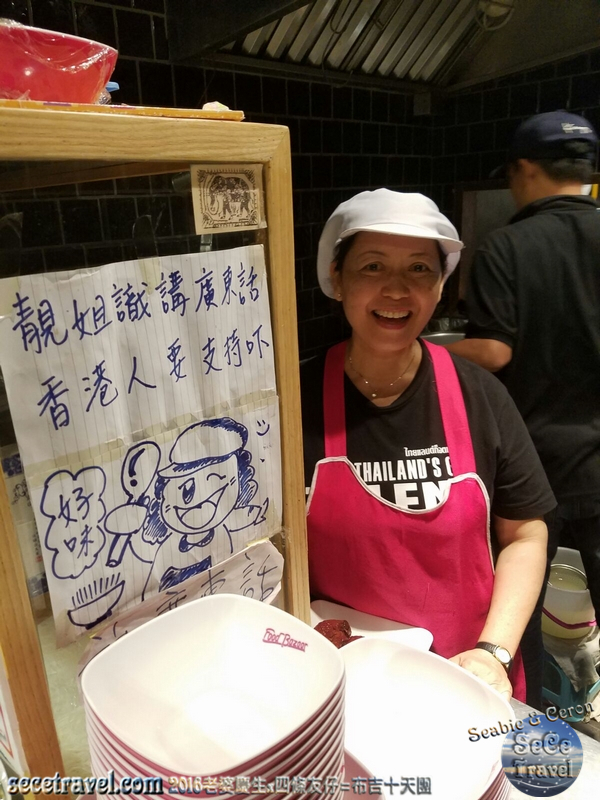 靚姐識講廣東話
香港人要支持吓
好
味
廣東話
ไทยแลนด์ก็อต
THAILAND'S G
LEN
Food Bazaar
Seabie & Ceron
SeCe
Travel
secetravel.com 2016老婆慶生x四條友仔=布吉十天團